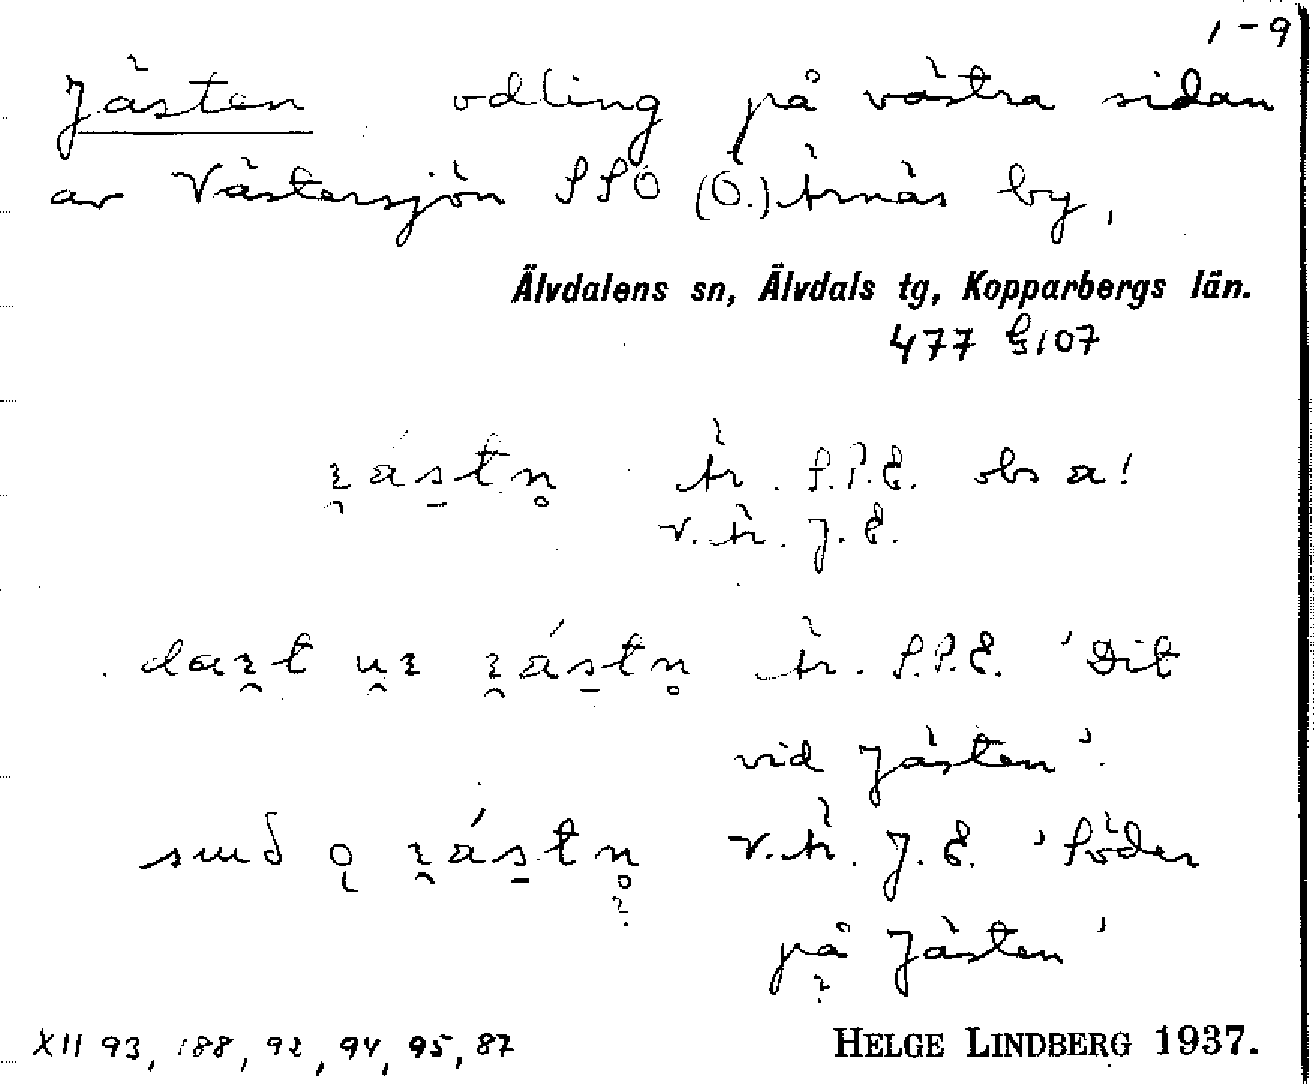 1-9
Jästen odling på västra sidan
av Västersjön SSO (Ö.) Ärnäs by,
Älvdalens sn, Älvdals tg, Kopparbergs län.
477 G107
Är. S.P.E. obs a!
v. Är. J. E.
Är. S.P.E. 'Dit
vid Jästen'.
V. Är. J. E. 'Söder
på Jästen'
XII 93, 188, 92, 94, 95, 87
HELGE LINDBERG 1937.